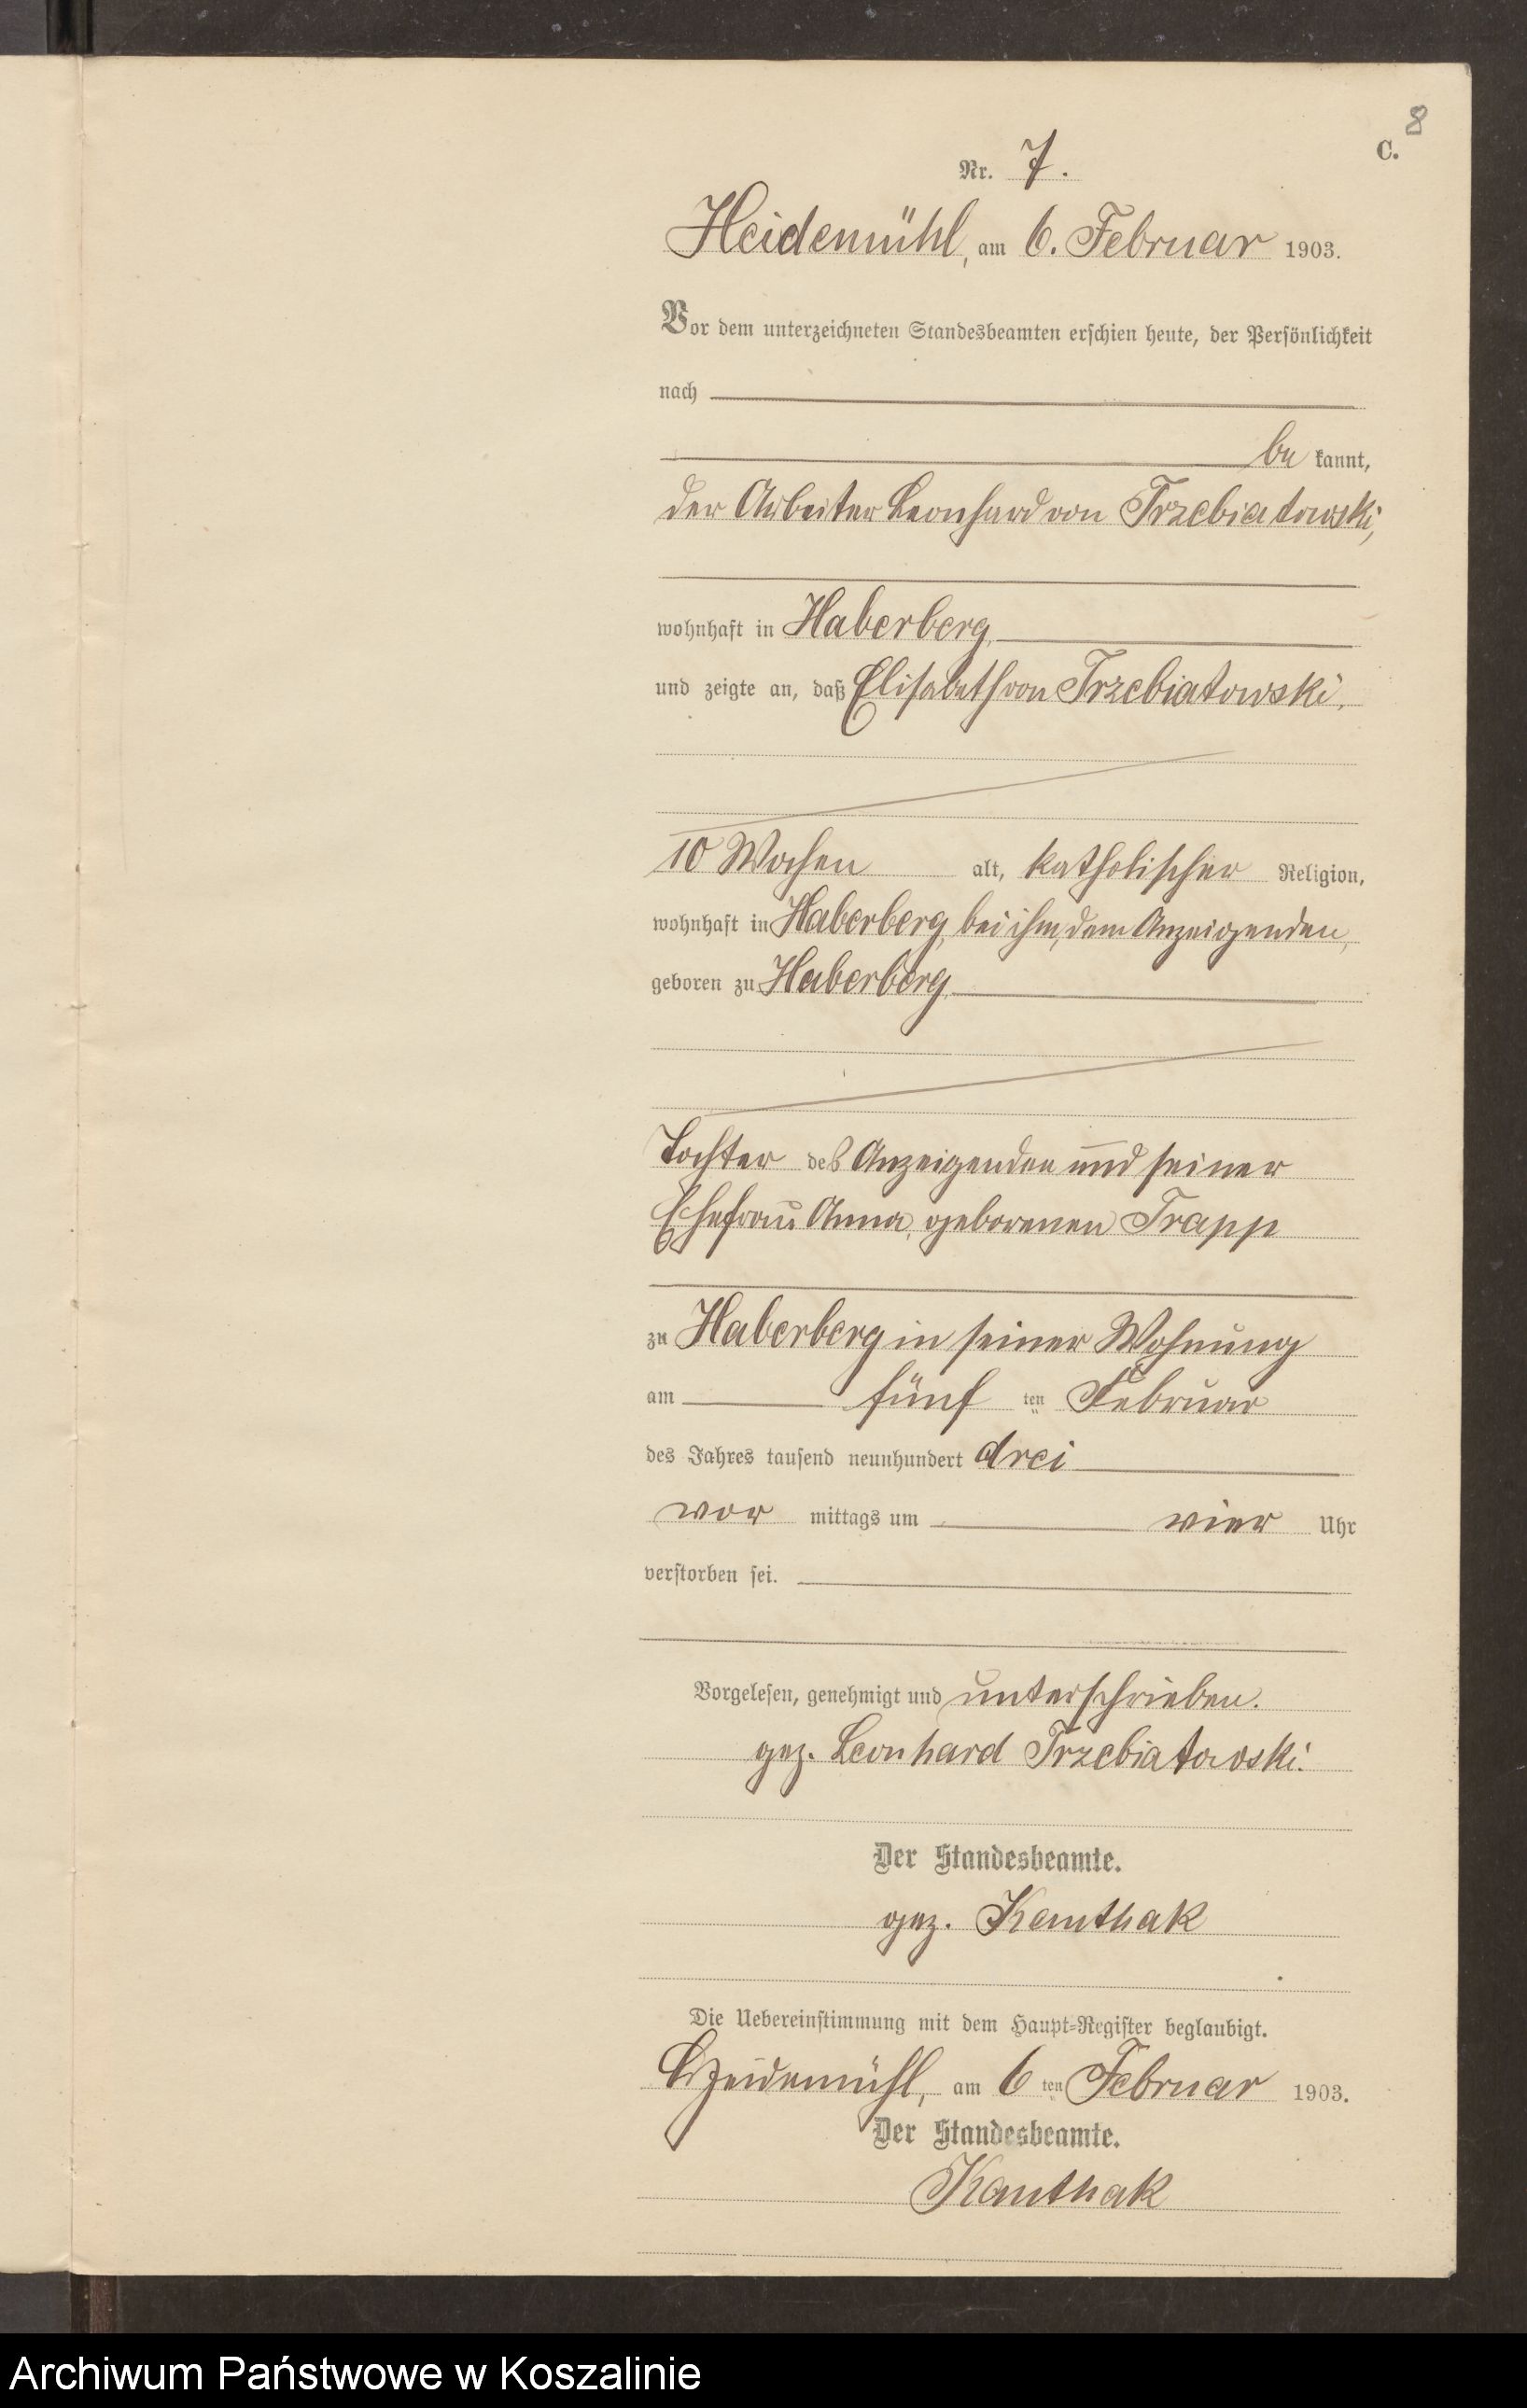 8
C.
Nr. 7.
Heidemühl, am 6. Februar 1903.
Vor dem unterzeichneten Standesbeamten erschien heute, der Persönlichkeit
nach
be kannt,
der Arbeiter Leonhard von Trzebiatowski,
wohnhaft in Haberberg,
und zeigte an, daß Elisabeth von Trzebiatowski,
10 Wochen alt, katholischer Religion,
wohnhaft in Haberberg, bei ihm, dem Anzeigenden,
geboren zu Haberberg,
Tochter des Anzeigenden und seiner
Ehefrau Anna, geborenen Trapp
zu Haberberg in seiner Wohnung
am fünf ten Februar
des Jahres tausend neunhundert drei
vor mittags um vier Uhr
verstorben sei.
Vorgelesen, genehmigt und unterschrieben.
gez. Leonhard Trzebiatowski.
Der Standesbeamte.
gez. Kanthak
Die Uebereinstimmung mit dem Haupt-Register beglaubigt.
Heidemühl, am 6 ten Februar 1903.
Der Standesbeamte.
Kanthak
Archiwum Państwowe w Koszalinie